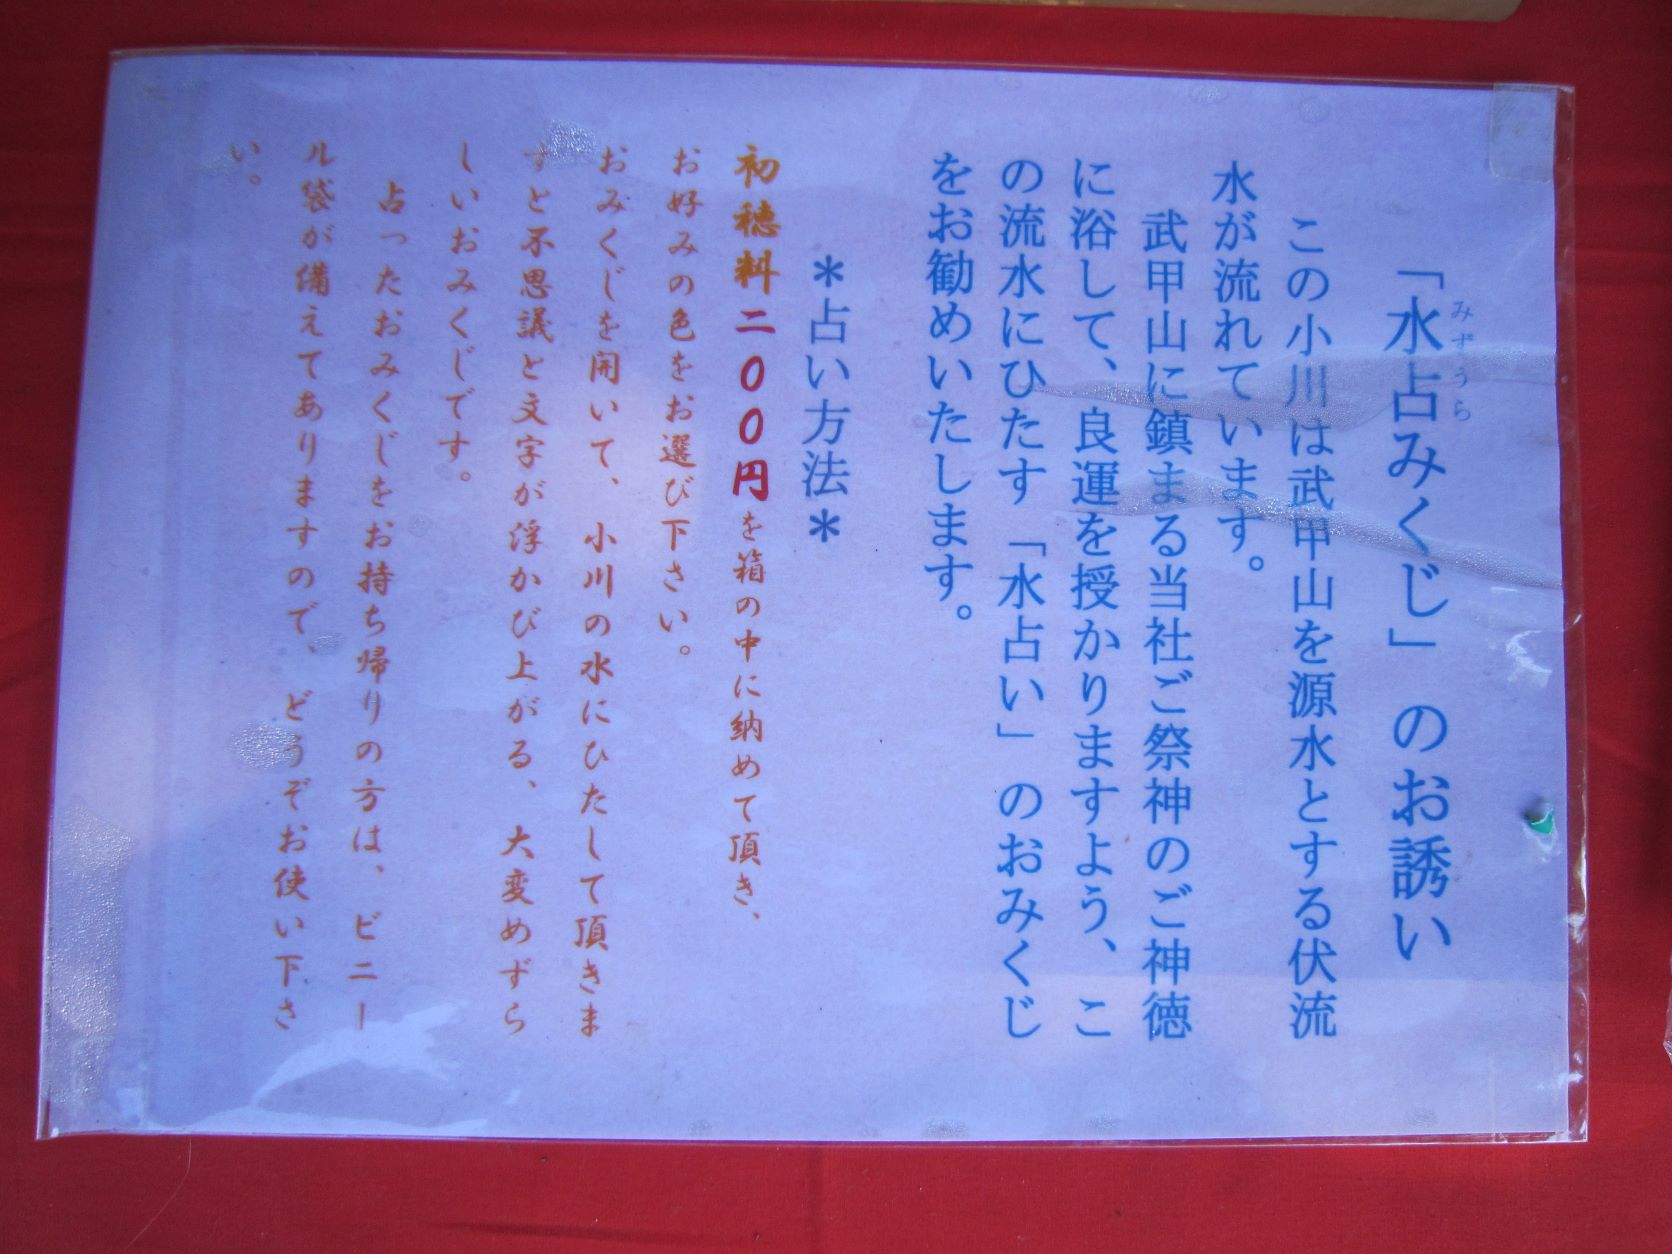 「水占みくじ」のお誘い
みずうら
この小川は武甲山を源水とする伏流
水が流れています。
武甲山に鎮まる当社ご祭神のご神徳
に浴して、良運を授かりますよう、こ
の流水にひたす「水占い」のおみくじ
をお勧めいたします。
＊占い方法＊
初穂料二００円を箱の中に納めて頂き、
お好みの色をお選び下さい。
おみくじを開いて、小川の水にひたして頂きま
すと不思議と文字が浮かび上がる、大変めずら
しいおみくじです。
占ったおみくじをお持ち帰りの方は、ビニー
ル袋が備えてありますので、どうぞお使い下さ
い。